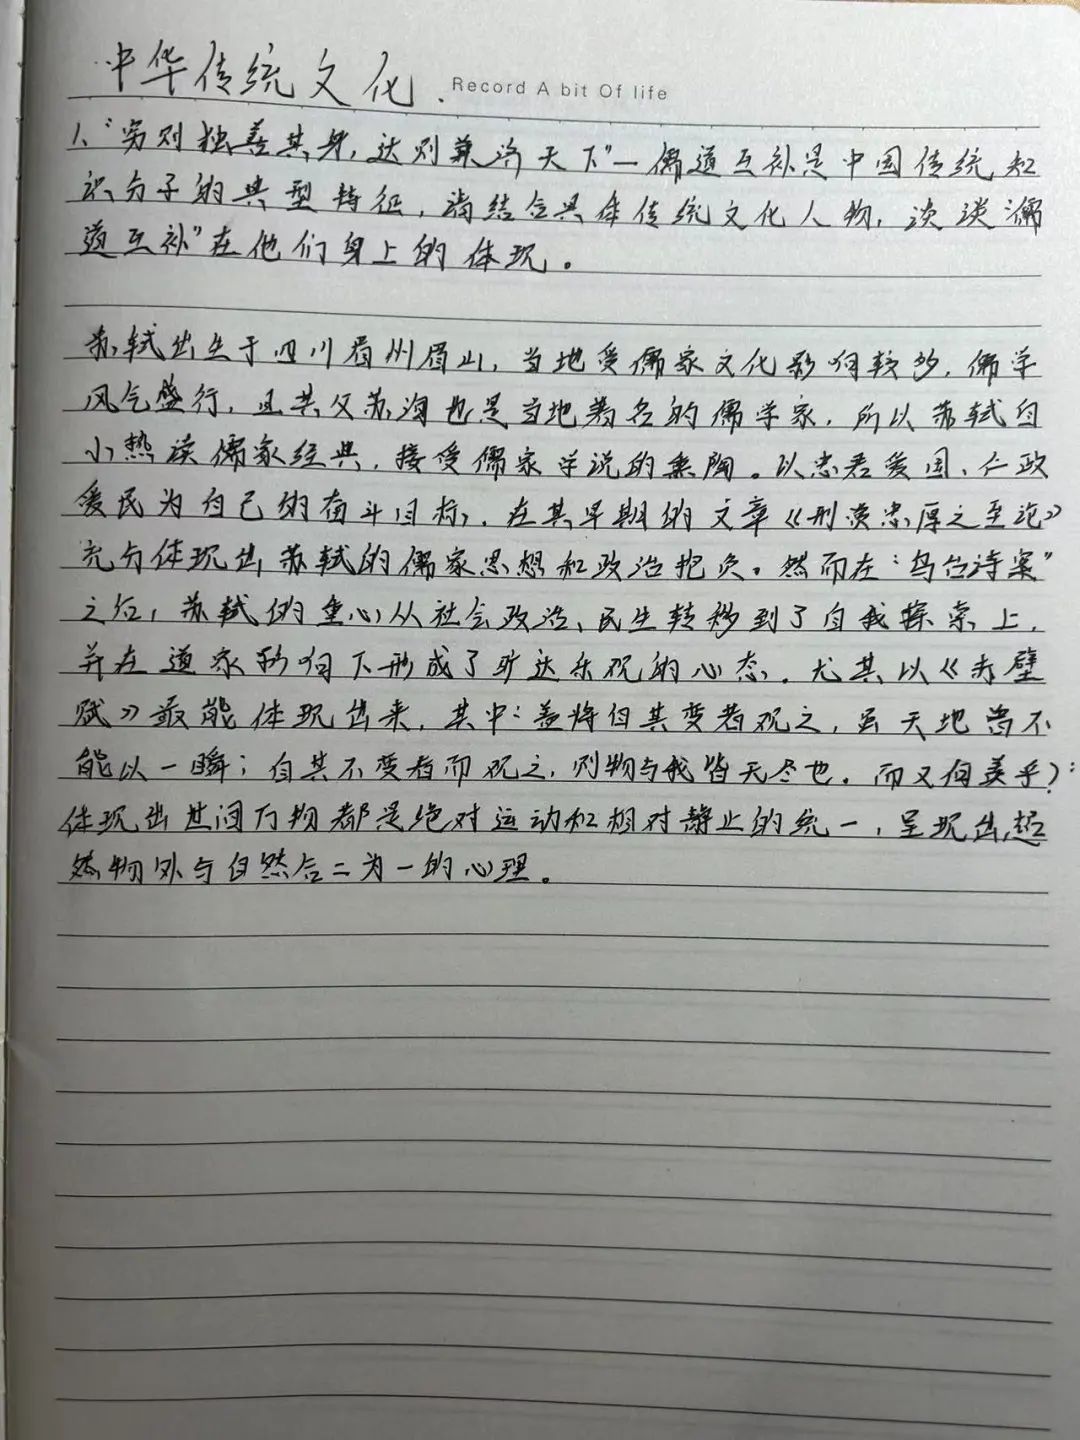 中华传统文化.
Record A bit Of life
1、“穷则独善其身,达则兼济天下”—儒道互补是中国传统知
识分子的典型特征,请结合具体传统文化人物,谈谈“儒
道互补”在他们身上的体现。
苏轼出生于四川眉州眉山,当地受儒家文化影响较多,儒学
风气盛行,且其父苏洵也是当地著名的儒学家,所以苏轼自
小熟读儒家经典,接受儒家学说的熏陶。以忠君爱国、仁政
爱民为自己的奋斗目标,在其早期的文章《刑赏忠厚之至论》
充分体现出苏轼的儒家思想和政治抱负。然而在“乌台诗案”
之后,苏轼的重心从社会政治、民生转移到了自我探索上,
并在道家影响下形成了旷达乐观的心态。尤其以《赤壁
赋》最能体现出来,其中:盖将自其变者观之,虽天地曾不
能以一瞬;自其不变者而观之,则物与我皆无尽也,而又何羡乎?:
体现出世间万物都是绝对运动和相对静止的统一,呈现出超
然物外与自然合二为一的心理。